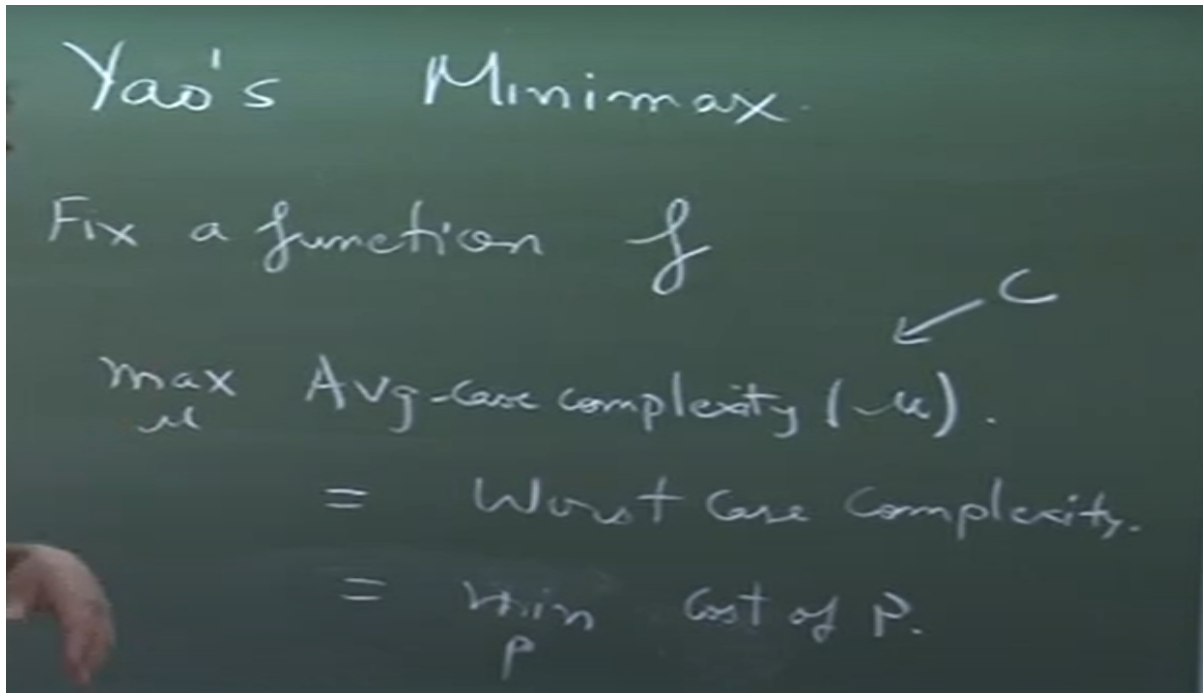 Yao's Minimax.
Fix a function f
C
max Avg-case complexity (μ).
μ
= Worst case complexity.
= min cost of P.
P